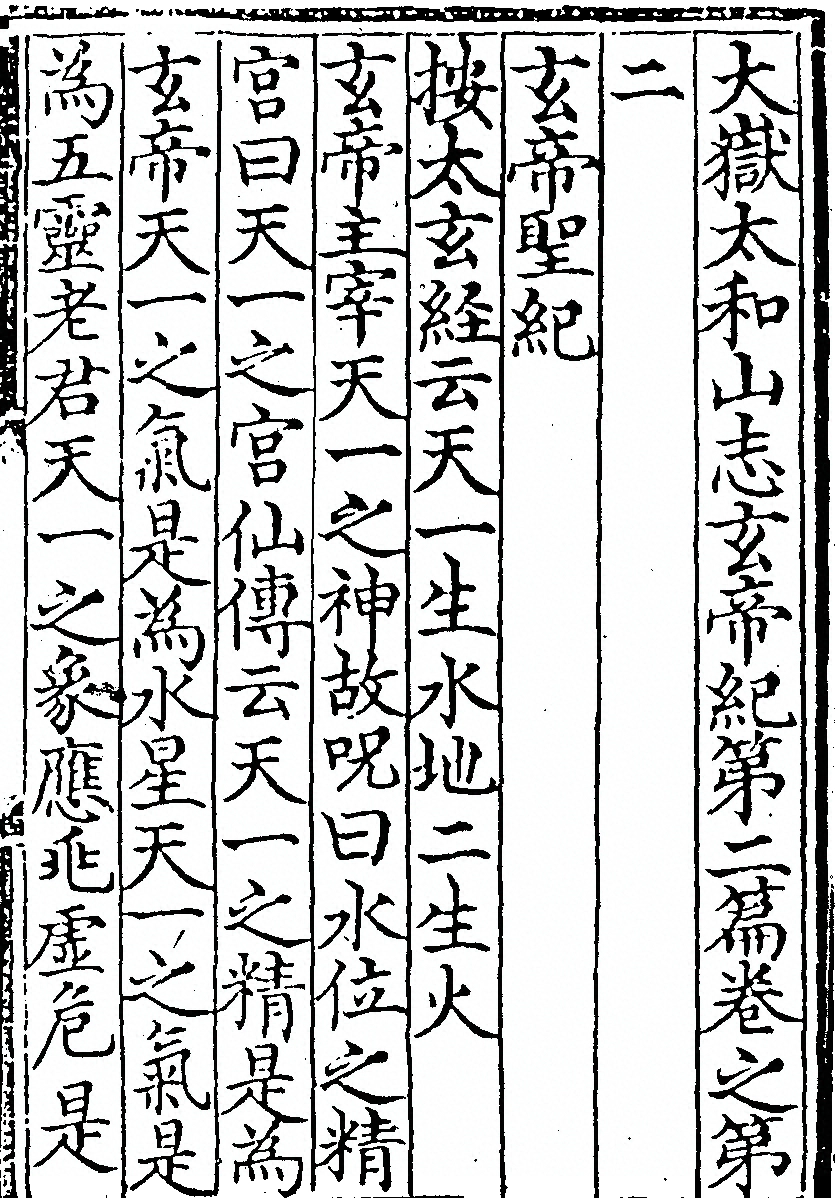 大嶽太和山志玄帝紀第二篇卷之第
二
玄帝聖紀
按太玄経云天一生水地二生火
玄帝主宰天一之神故呪曰水位之精
宫曰天一之宫仙傳云天一之精是為
玄帝天一之氣是為水星天一之氣是
為五靈老君天一之象應兆虚危是